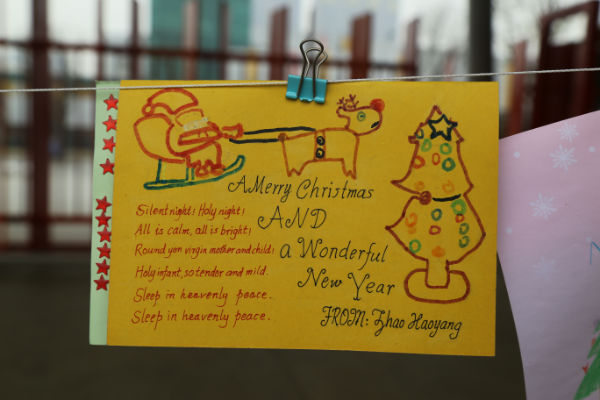 A Merry Christmas
AND
a Wonderful
New Year
FROM: Zhao Haoyang
Silent night! Holy night!
All is calm, all is bright!
Round yon virgin mother and child!
Holy infant, so tendor and mild.
Sleep in heavenly peace.
Sleep in heavenly peace.